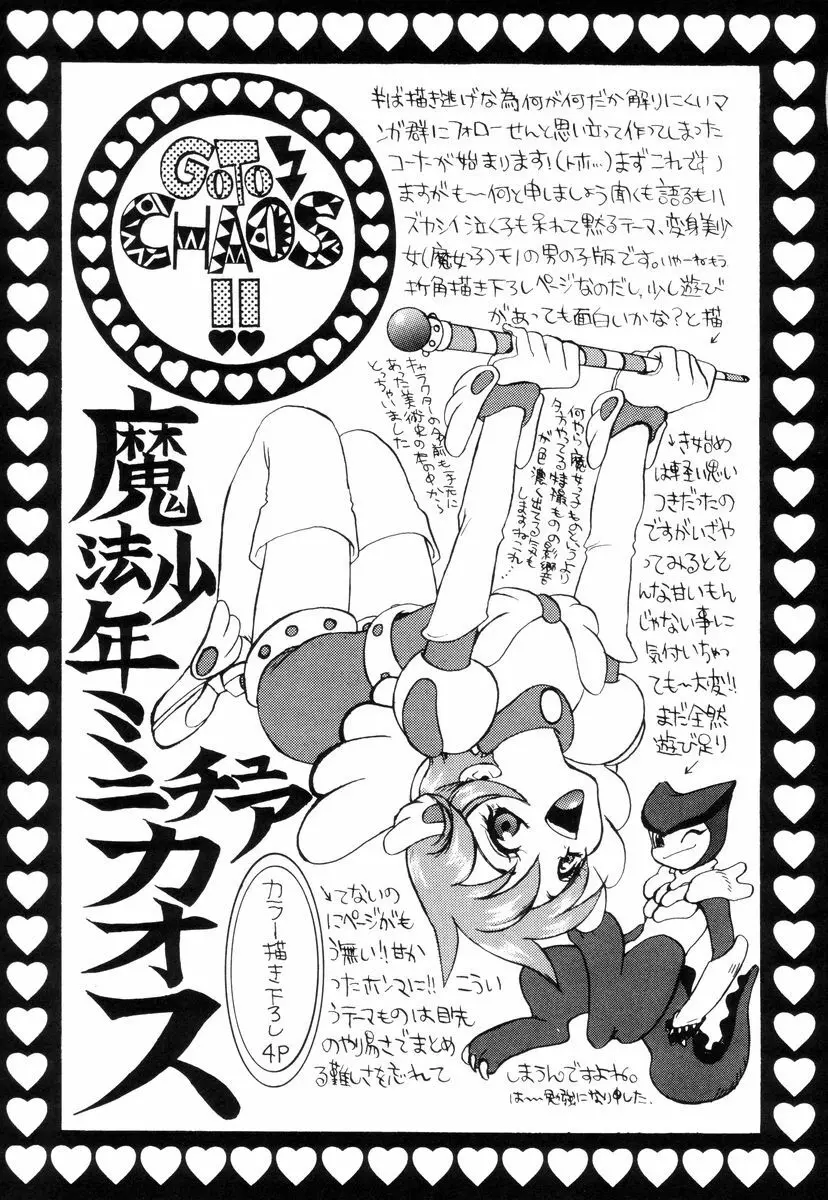 GOTO
CHAOS
!!
半ば描き逃げな為何が何だか解りにくいマ
ンガ群にフォローせんと思い立って作ってしまった
コーナーが始まります!(トホホ…)まずこれです
ますがも〜何と申しましょう聞くも語るもハ
ズカシイ泣く子も呆れて黙るテーマ、変身美少
女(魔女っ子)モノの男の子版です。いやーねもう
折角描き下ろしページなのだし、少し遊び
があっても面白いかな?と描
き始め
は軽い思い
つきだったの
ですがいざや
ってみるとそ
んな甘いもん
じゃない事に
気付いちゃっ
ても〜大変!!
まだ全然
遊び足り
てないの
にページがも
う無い!!甘か
ったホンマに!!こうい
うテーマものは目先
のやり易さでまとめ
る難しさを忘れて
しまうんですよね。
は〜勉強になり申した.
キャラクターの名前も手元に
あった美術史の本の中から
とっちゃいました
何やら魔女っ子ものというより
夕方やってる特撮ものの影響
が色濃く出てる気も
しますねこれ…
魔法少年ミニチュアカオス
カラー描き下ろし4P